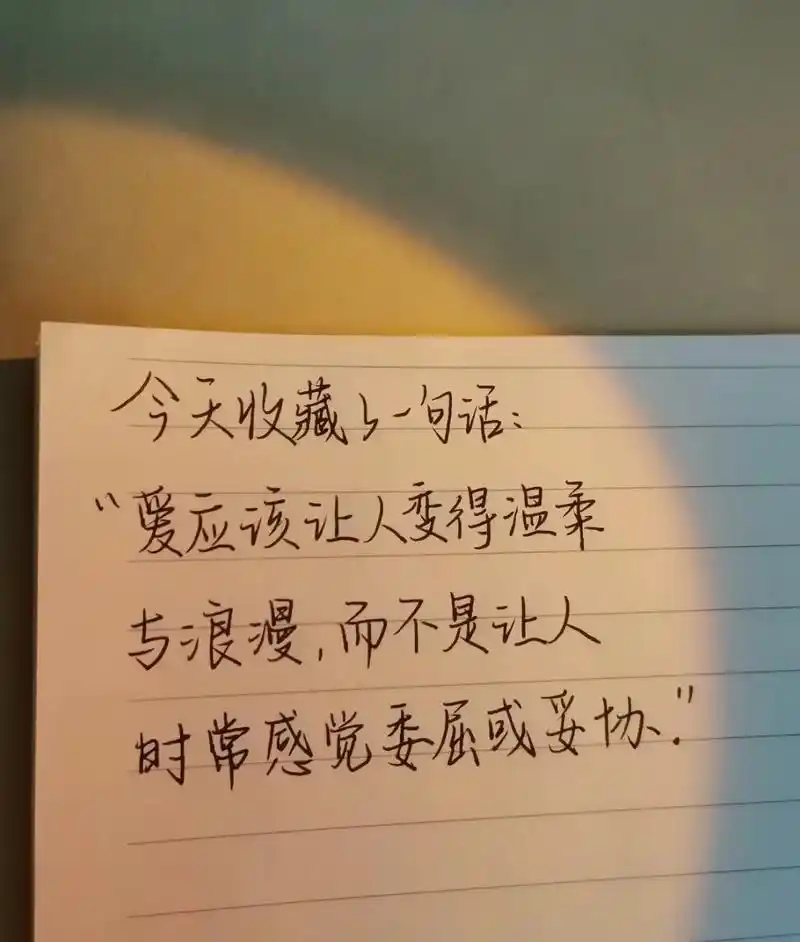 今天收藏了一句话：
“爱应该让人变得温柔
与浪漫，而不是让人
时常感觉委屈或妥协.”